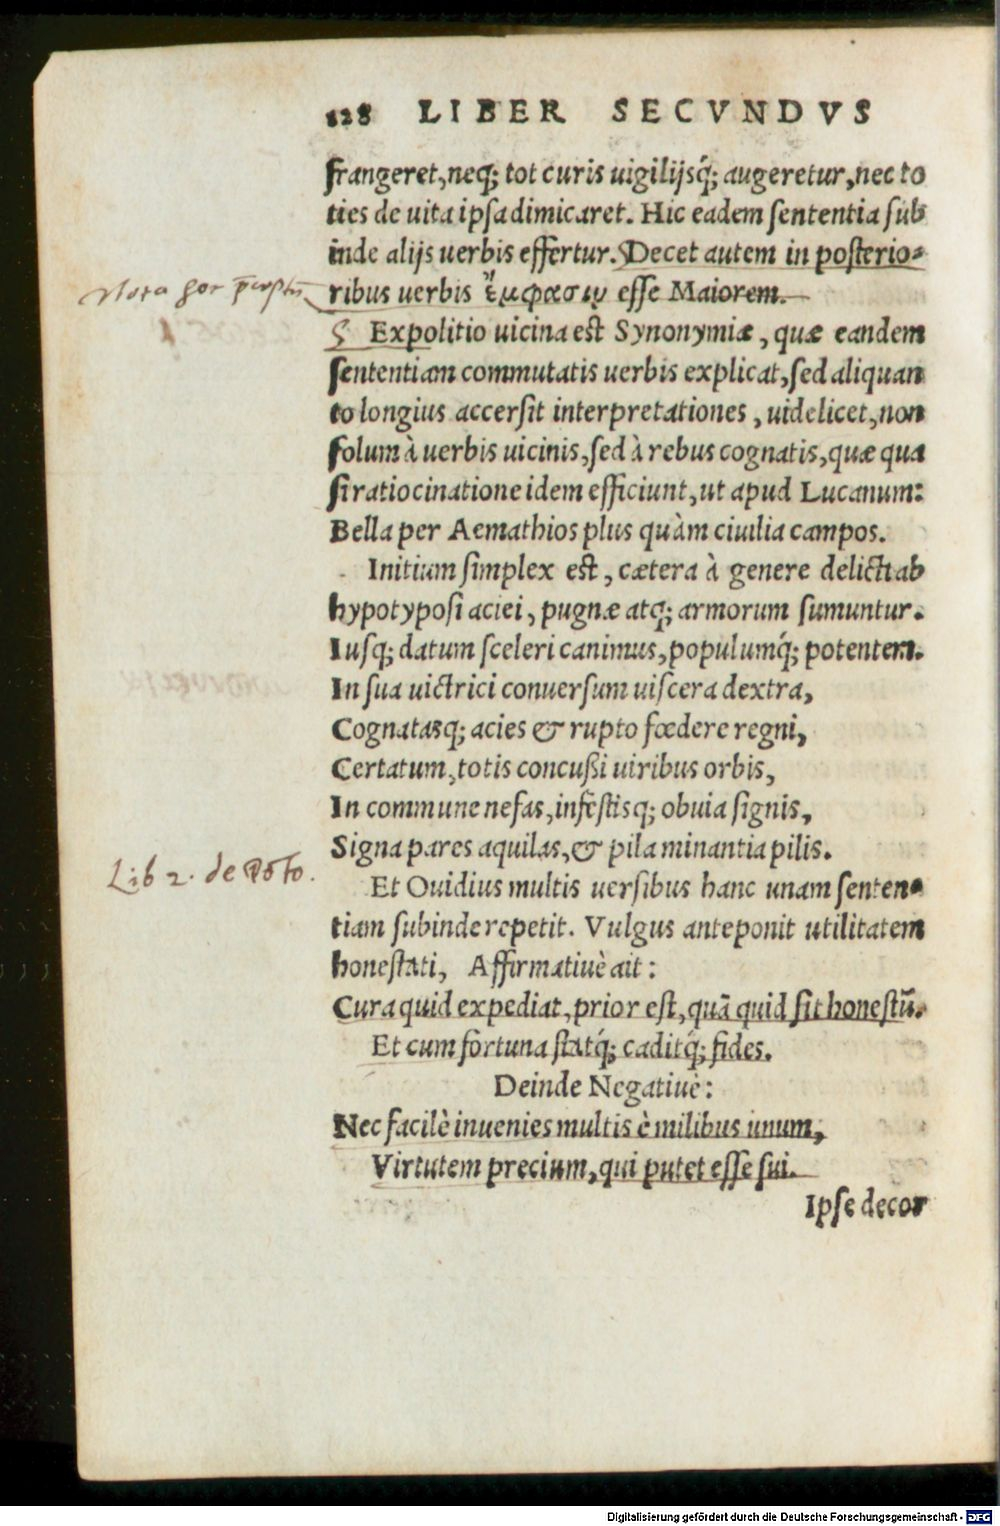 128 LIBER SECVNDVS
frangeret, neq; tot curis uigilijsq́; augeretur, nec to
ties de uita ipsa dimicaret. Hic eadem sententia sub
inde alijs uerbis effertur. Decet autem in posterio-
ribus uerbis ἔμφασιν esse Maiorem.
Nota
Expolitio uicina est Synonymiæ, quæ eandem
sententiam commutatis uerbis explicat, sed aliquan
to longius accersit interpretationes, uidelicet, non
solum à uerbis uicinis, sed à rebus cognatis, quæ qua
si ratiocinatione idem efficiunt, ut apud Lucanum:
Bella per Aemathios plus quàm ciuilia campos.
Initium simplex est, cætera à genere delicti ab
hypotyposi aciei, pugnæ atq; armorum sumuntur.
Iusq; datum sceleri canimus, populumq́; potentem.
In sua uictrici conuersum uiscera dextra,
Cognatasq; acies & rupto fœdere regni,
Certatum, totis concußi uiribus orbis,
In commune nefas, infestisq; obuia signis,
Signa pares aquilas, & pila minantia pilis.
Lib 2. de Põto.
Et Ouidius multis uersibus hanc unam senten-
tiam subinde repetit. Vulgus anteponit utilitatem
honestati, Affirmatiuè ait:
Cura quid expediat, prior est, quã quid sit honestũ.
Et cum fortuna statq́; caditq́; fides.
Deinde Negatiuè:
Nec facilè inuenies multis è milibus unum,
Virtutem precium, qui putet esse sui.
Ipse decor
Digitalisierung gefördert durch die Deutsche Forschungsgemeinschaft - DFG